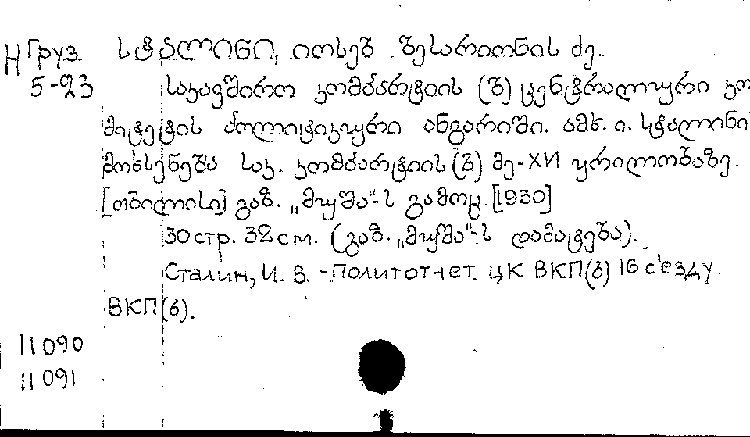 Н Груз სტალინი, იოსებ ბესარიონის ძე.
5-23 საკავშირო კომპარტიის (ბ) ცენტრალური კო
მიტეტის პოლიტიკური ანგარიში. ამხ. ი. სტალინი
მოხსენება საკ. კომპარტიის (ბ) მე-XVI ყრილობაზე.
[თბილისი] გაზ. „მუშა"-ს გამოც. [1930]
30 стр. 32 см. (გაზ. „მუშა"-ს დამატება).
Сталин, И. В. - Политотчет ЦК ВКП(б) 16 с'езду
ВКП(б).
11090
11091